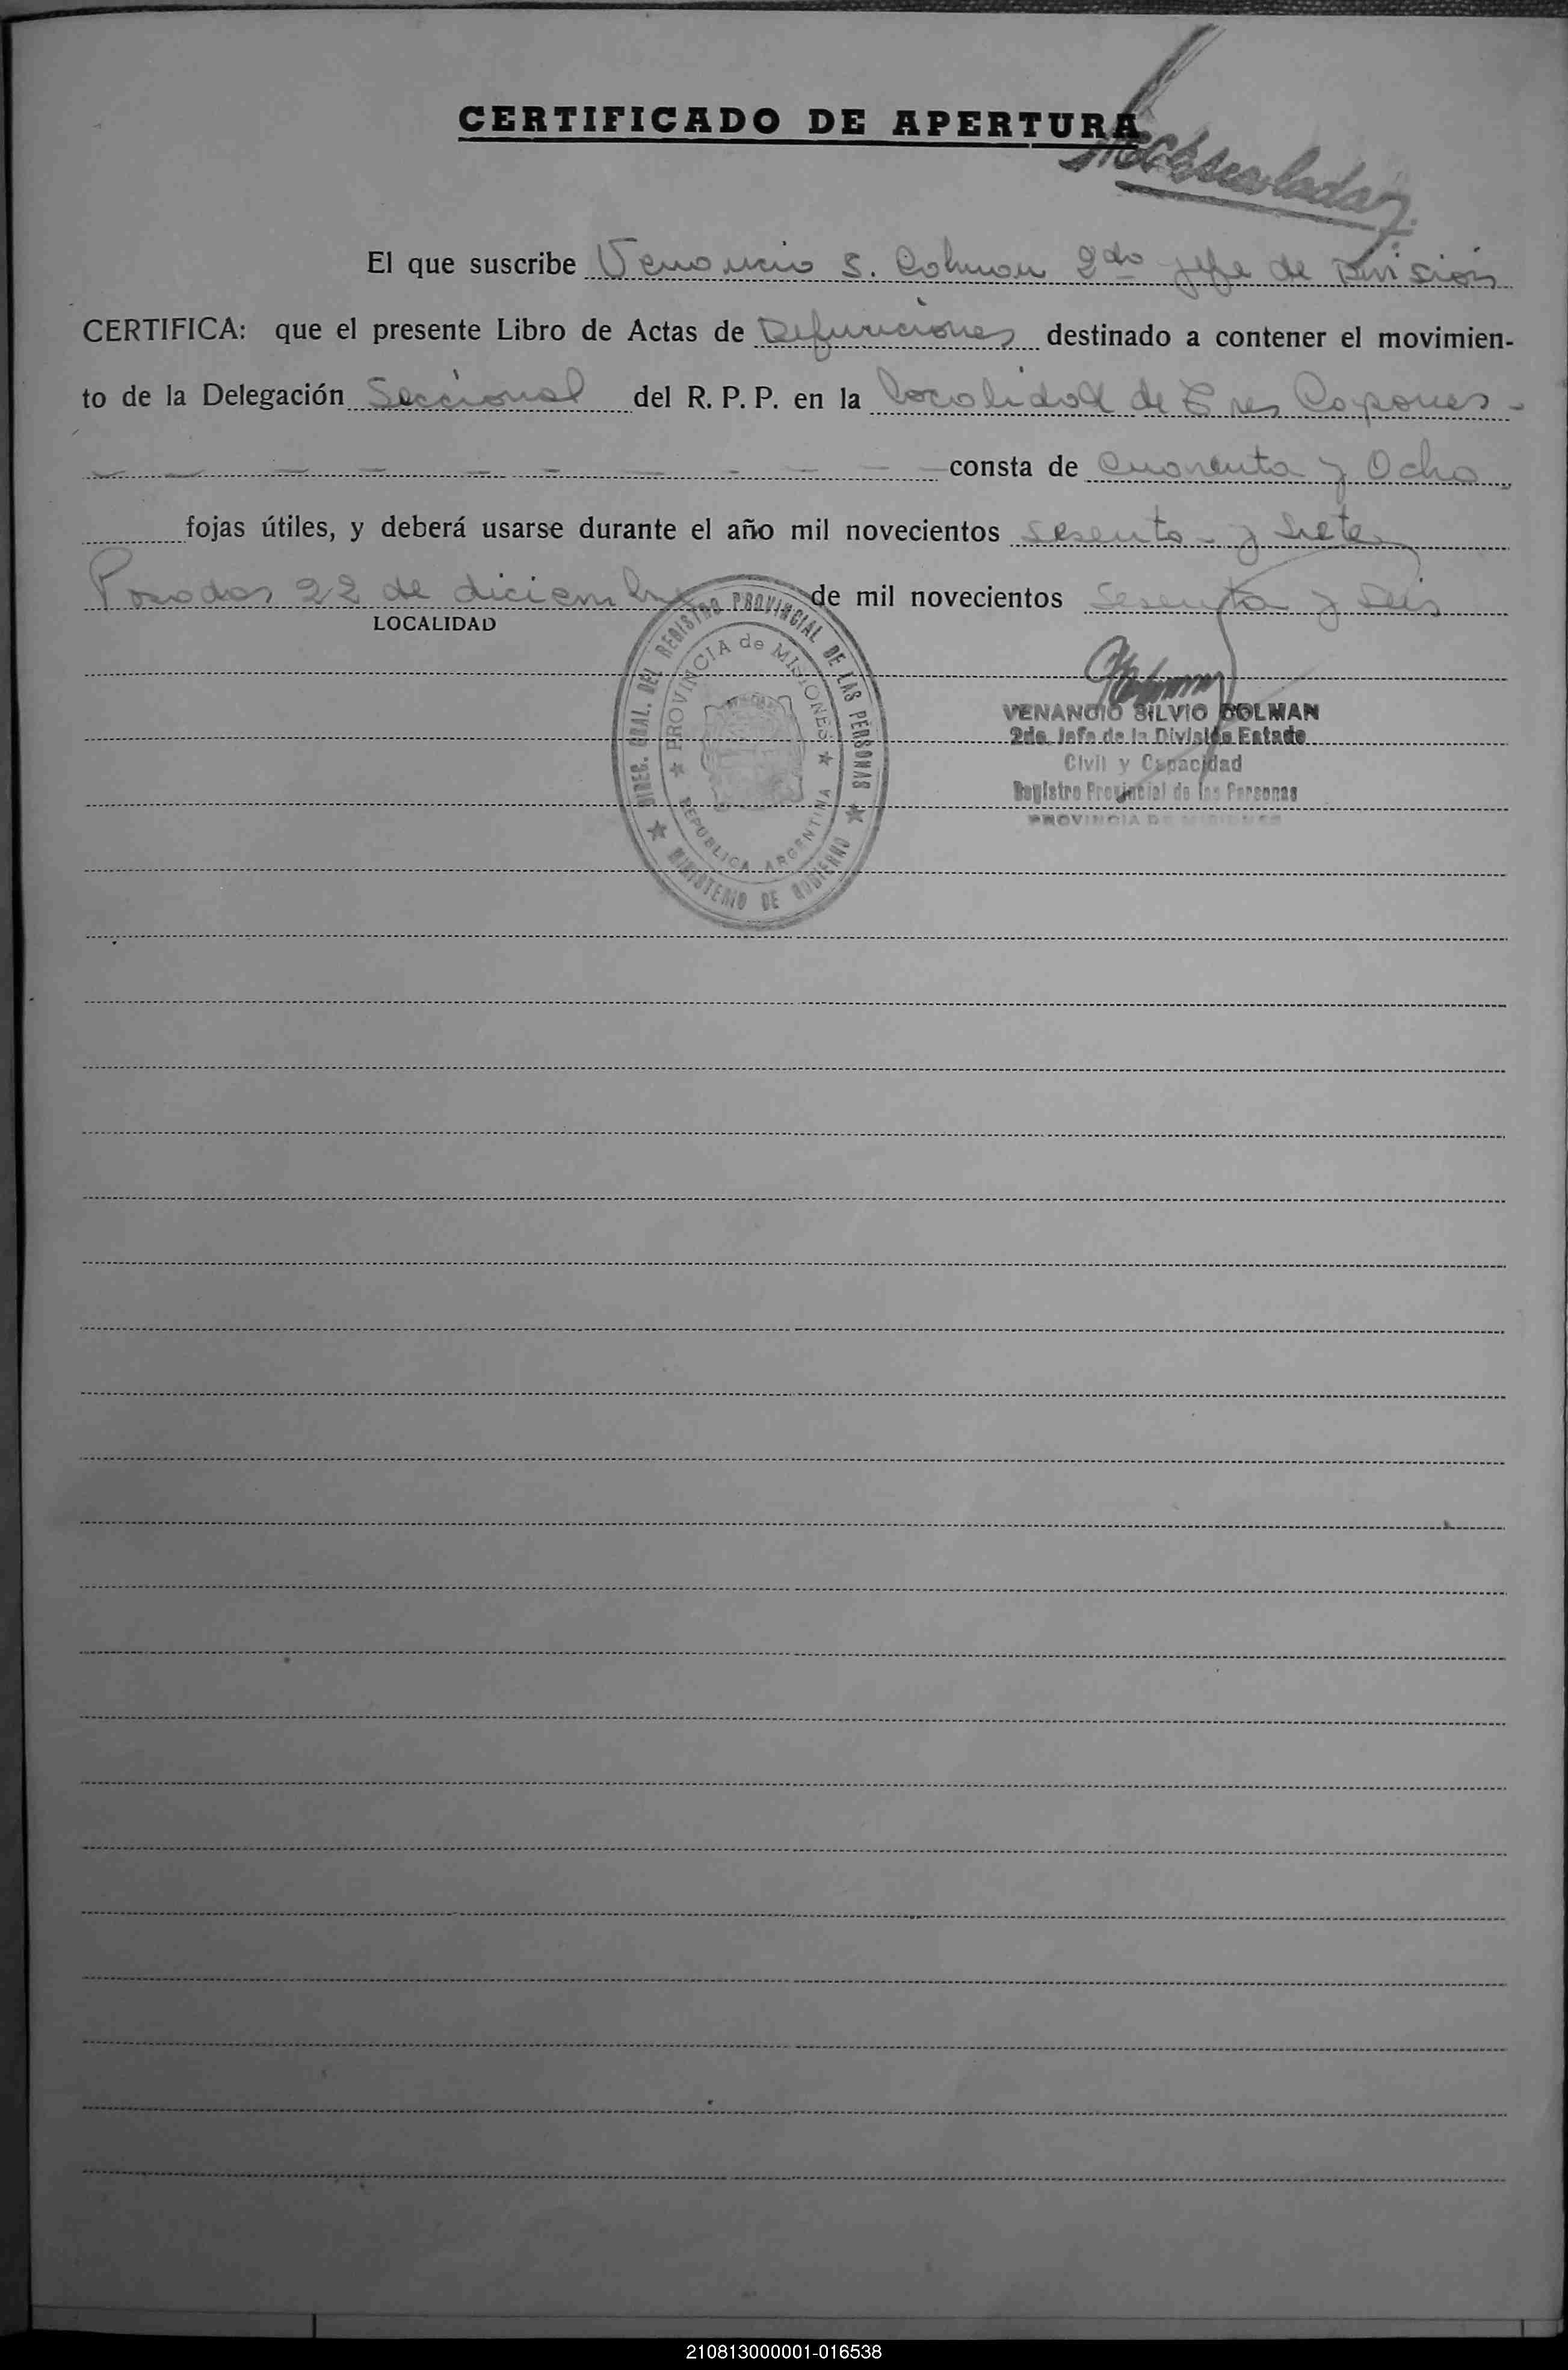 CERTIFICADO DE APERTURA
El que suscribe Venancio S. Colman 2do jefe de División
CERTIFICA: que el presente Libro de Actas de Defunciones destinado a contener el movimien-
to de la Delegación Seccional del R. P. P. en la localidad de Tres Capones -
consta de Cuarenta y Ocho
fojas útiles, y deberá usarse durante el año mil novecientos sesenta y siete
Posadas 22 de diciembre de mil novecientos sesenta y seis
LOCALIDAD
DIREC. GRAL. DEL REGISTRO PROVINCIAL DE LAS PERSONAS
PROVINCIA de MISIONES
REPUBLICA ARGENTINA
MINISTERIO DE GOBIERNO
VENANCIO SILVIO COLMAN
2do. Jefe de la División Estado
Civil y Capacidad
Registro Provincial de las Personas
PROVINCIA DE MISIONES
210813000001-016538